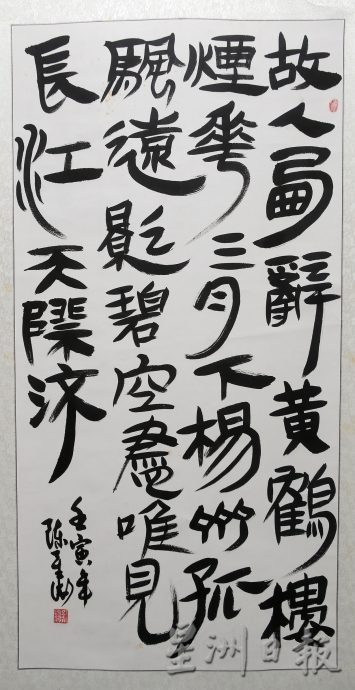 故人西辭黄鶴樓
煙華三月下楊州孤
颿遠影碧空盡唯見
長江天際流
壬寅年
星洲日報